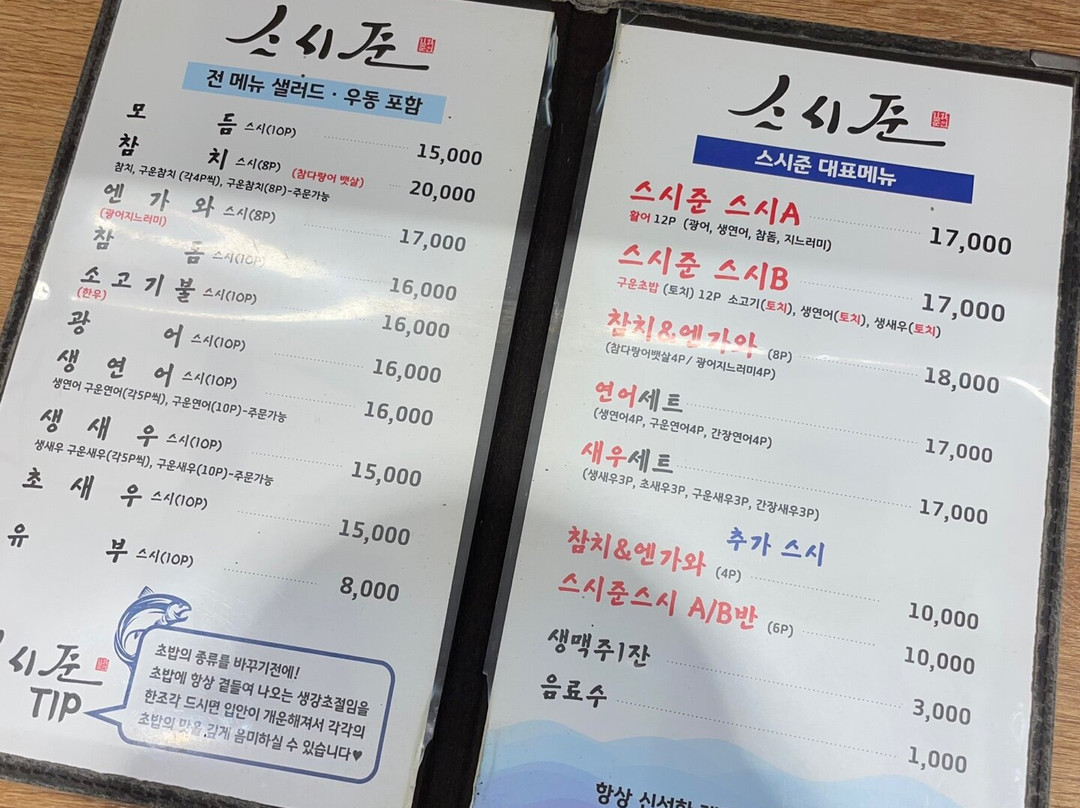 스시준
전 메뉴 샐러드 · 우동 포함
모 듬 스시(10P) 15,000
참 치 스시(8P) (참다랑어 뱃살) 20,000
참치, 구운참치 (각4P씩), 구운참치(8P)-주문가능
엔 가 와 스시(8P) 17,000
(광어지느러미)
참 돔 스시(10P) 16,000
소 고 기 불 스시(10P) 16,000
(한우)
광 어 스시(10P) 16,000
생 연 어 스시(10P) 16,000
생연어 구운연어(각5P씩), 구운연어(10P)-주문가능
생 새 우 스시(10P) 15,000
생새우 구운새우(각5P씩), 구운새우(10P)-주문가능
초 새 우 스시(10P) 15,000
유 부 스시(10P) 8,000
시준
TIP
초밥의 종류를 바꾸기전에!
초밥에 항상 곁들여 나오는 생강초절임을
한조각 드시면 입안이 개운해져서 각각의
초밥의 맛을 깊게 음미하실 수 있습니다♥
스시준
스시준 대표메뉴
스시준 스시A 17,000
활어 12P (광어, 생연어, 참돔, 지느러미)
스시준 스시B 17,000
구운초밥 (토치) 12P 소고기(토치), 생연어(토치), 생새우(토치)
참치&엔가와 (8P) 18,000
(참다랑어뱃살4P / 광어지느러미4P)
연어세트 17,000
(생연어4P, 구운연어4P, 간장연어4P)
새우세트 17,000
(생새우3P, 초새우3P, 구운새우3P, 간장새우3P)
추가 스시
참치&엔가와 (4P) 10,000
스시준스시 A/B반 (6P) 10,000
생맥주1잔 3,000
음료수 1,000
항상 신선한